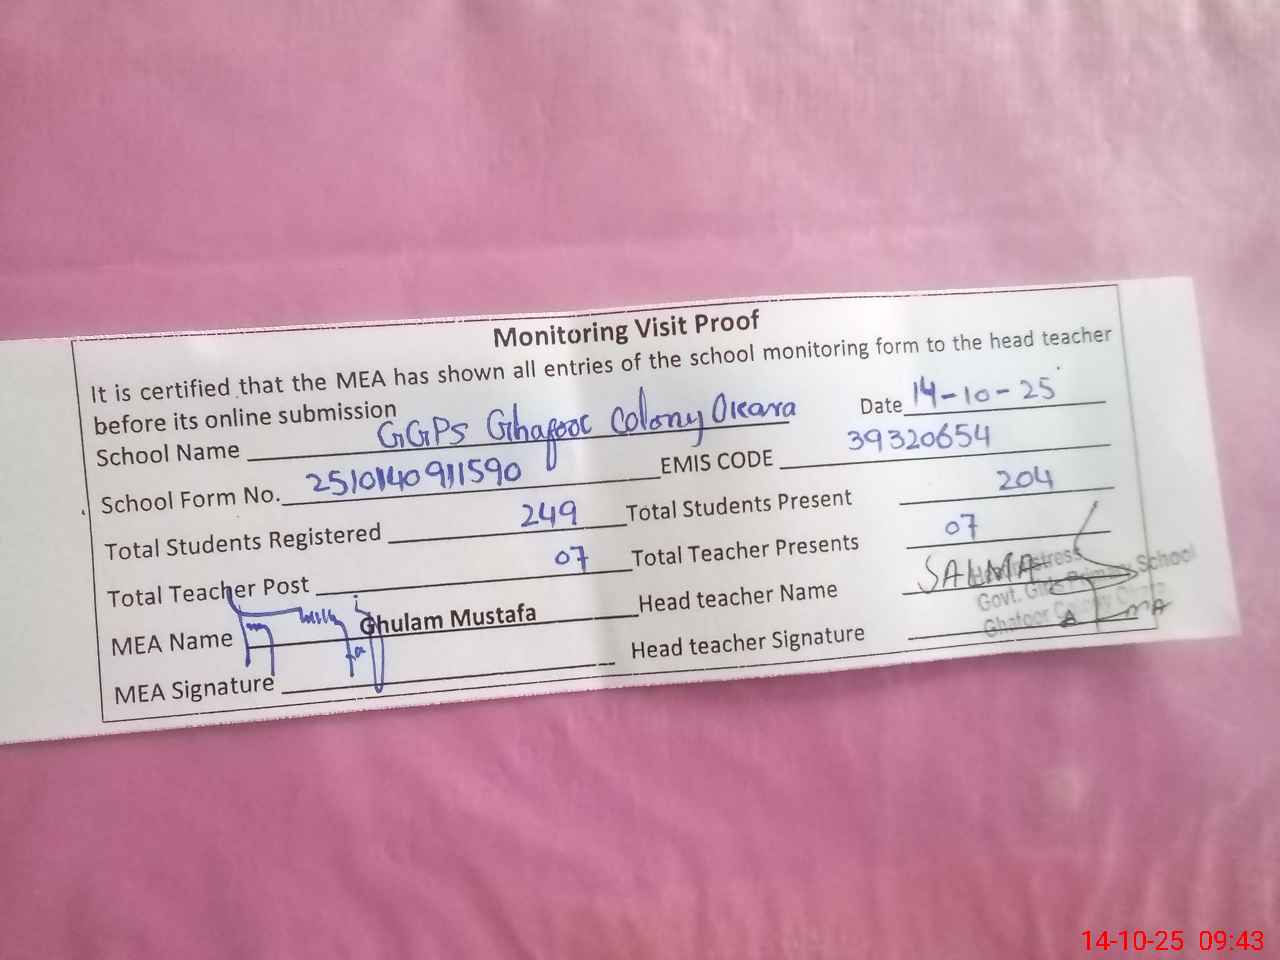 Monitoring Visit Proof
It is certified that the MEA has shown all entries of the school monitoring form to the head teacher
before its online submission
School Name GGPS Ghafoor Colony Okara Date 14-10-25
School Form No. 2510140911590 EMIS CODE 39320654
Total Students Registered 249 Total Students Present 204
Total Teacher Post 07 Total Teacher Presents 07
MEA Name Ghulam Mustafa Head teacher Name SALMA
MEA Signature Head teacher Signature
Govt. Girls Primary School
Ghafoor Colony
14-10-25 09:43